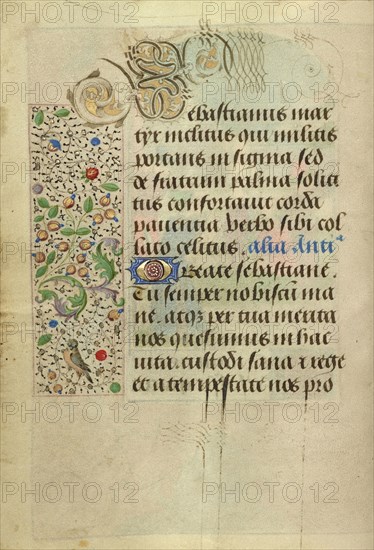 Sebastianus mar
tyr inclitus qui militis
portans insigma sed
de fratrum palma solici
tus confortauit corda
pauentia verbo sibi col
lato celitus, alia Anti
O beate sebastiane.
Tu semper nobiscum ma
ne. atqz per tua merita
nos quesumus in hac
uita. custodi sana z rege
ec a tempestate nos pro
PHOTO 12